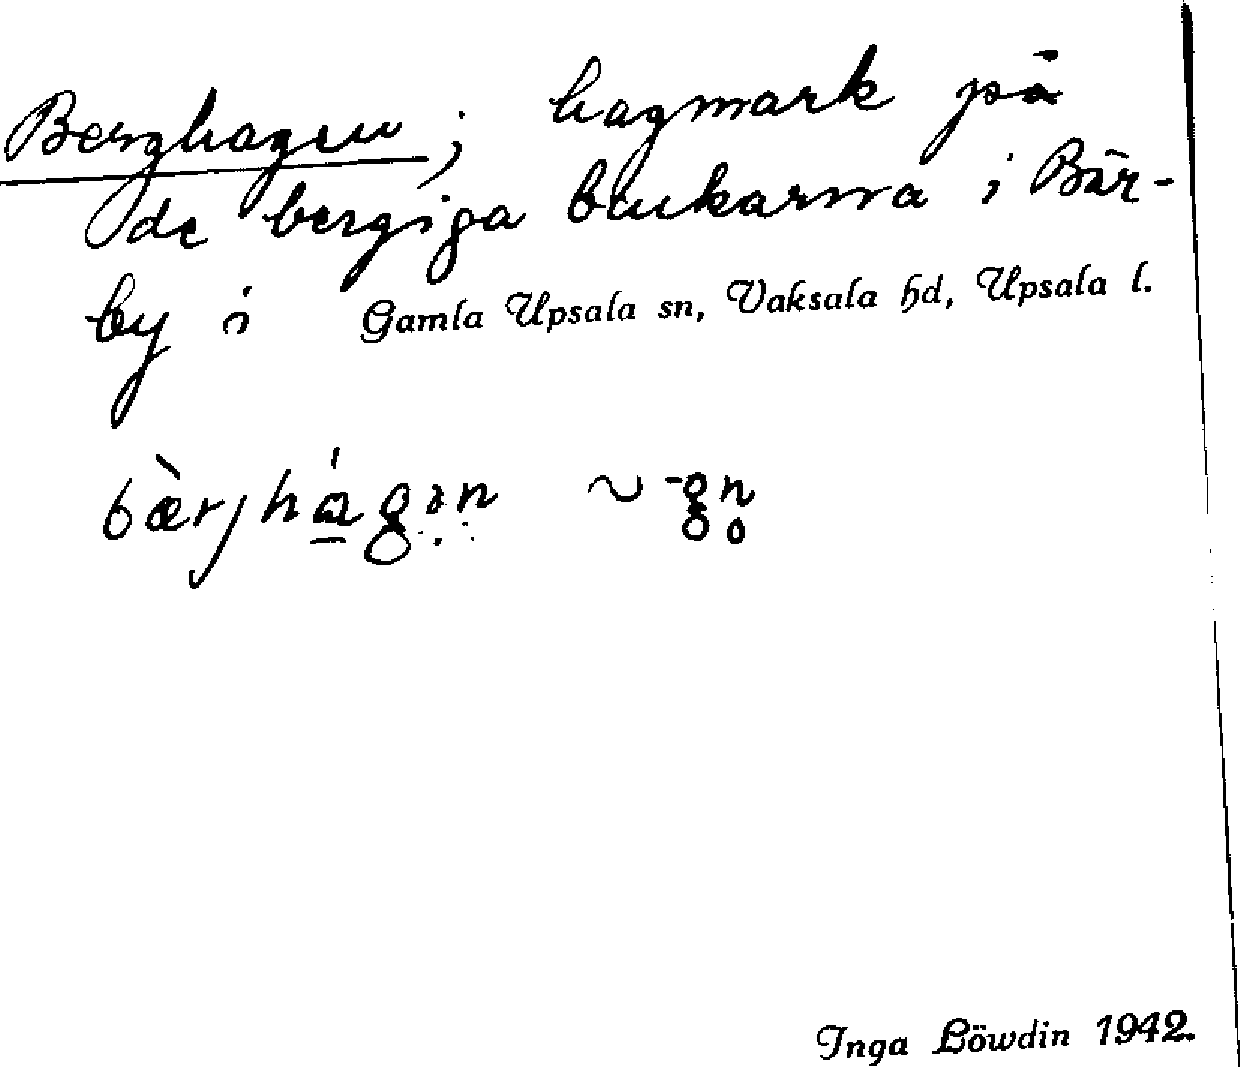 Berghagen; hagmark på
de bergiga backarna i Bär-
by i Gamla Upsala sn, Vaksala hd, Upsala l.
bæ̀rjhá̱gən ~ -gn̥
Inga Löwdin 1942.